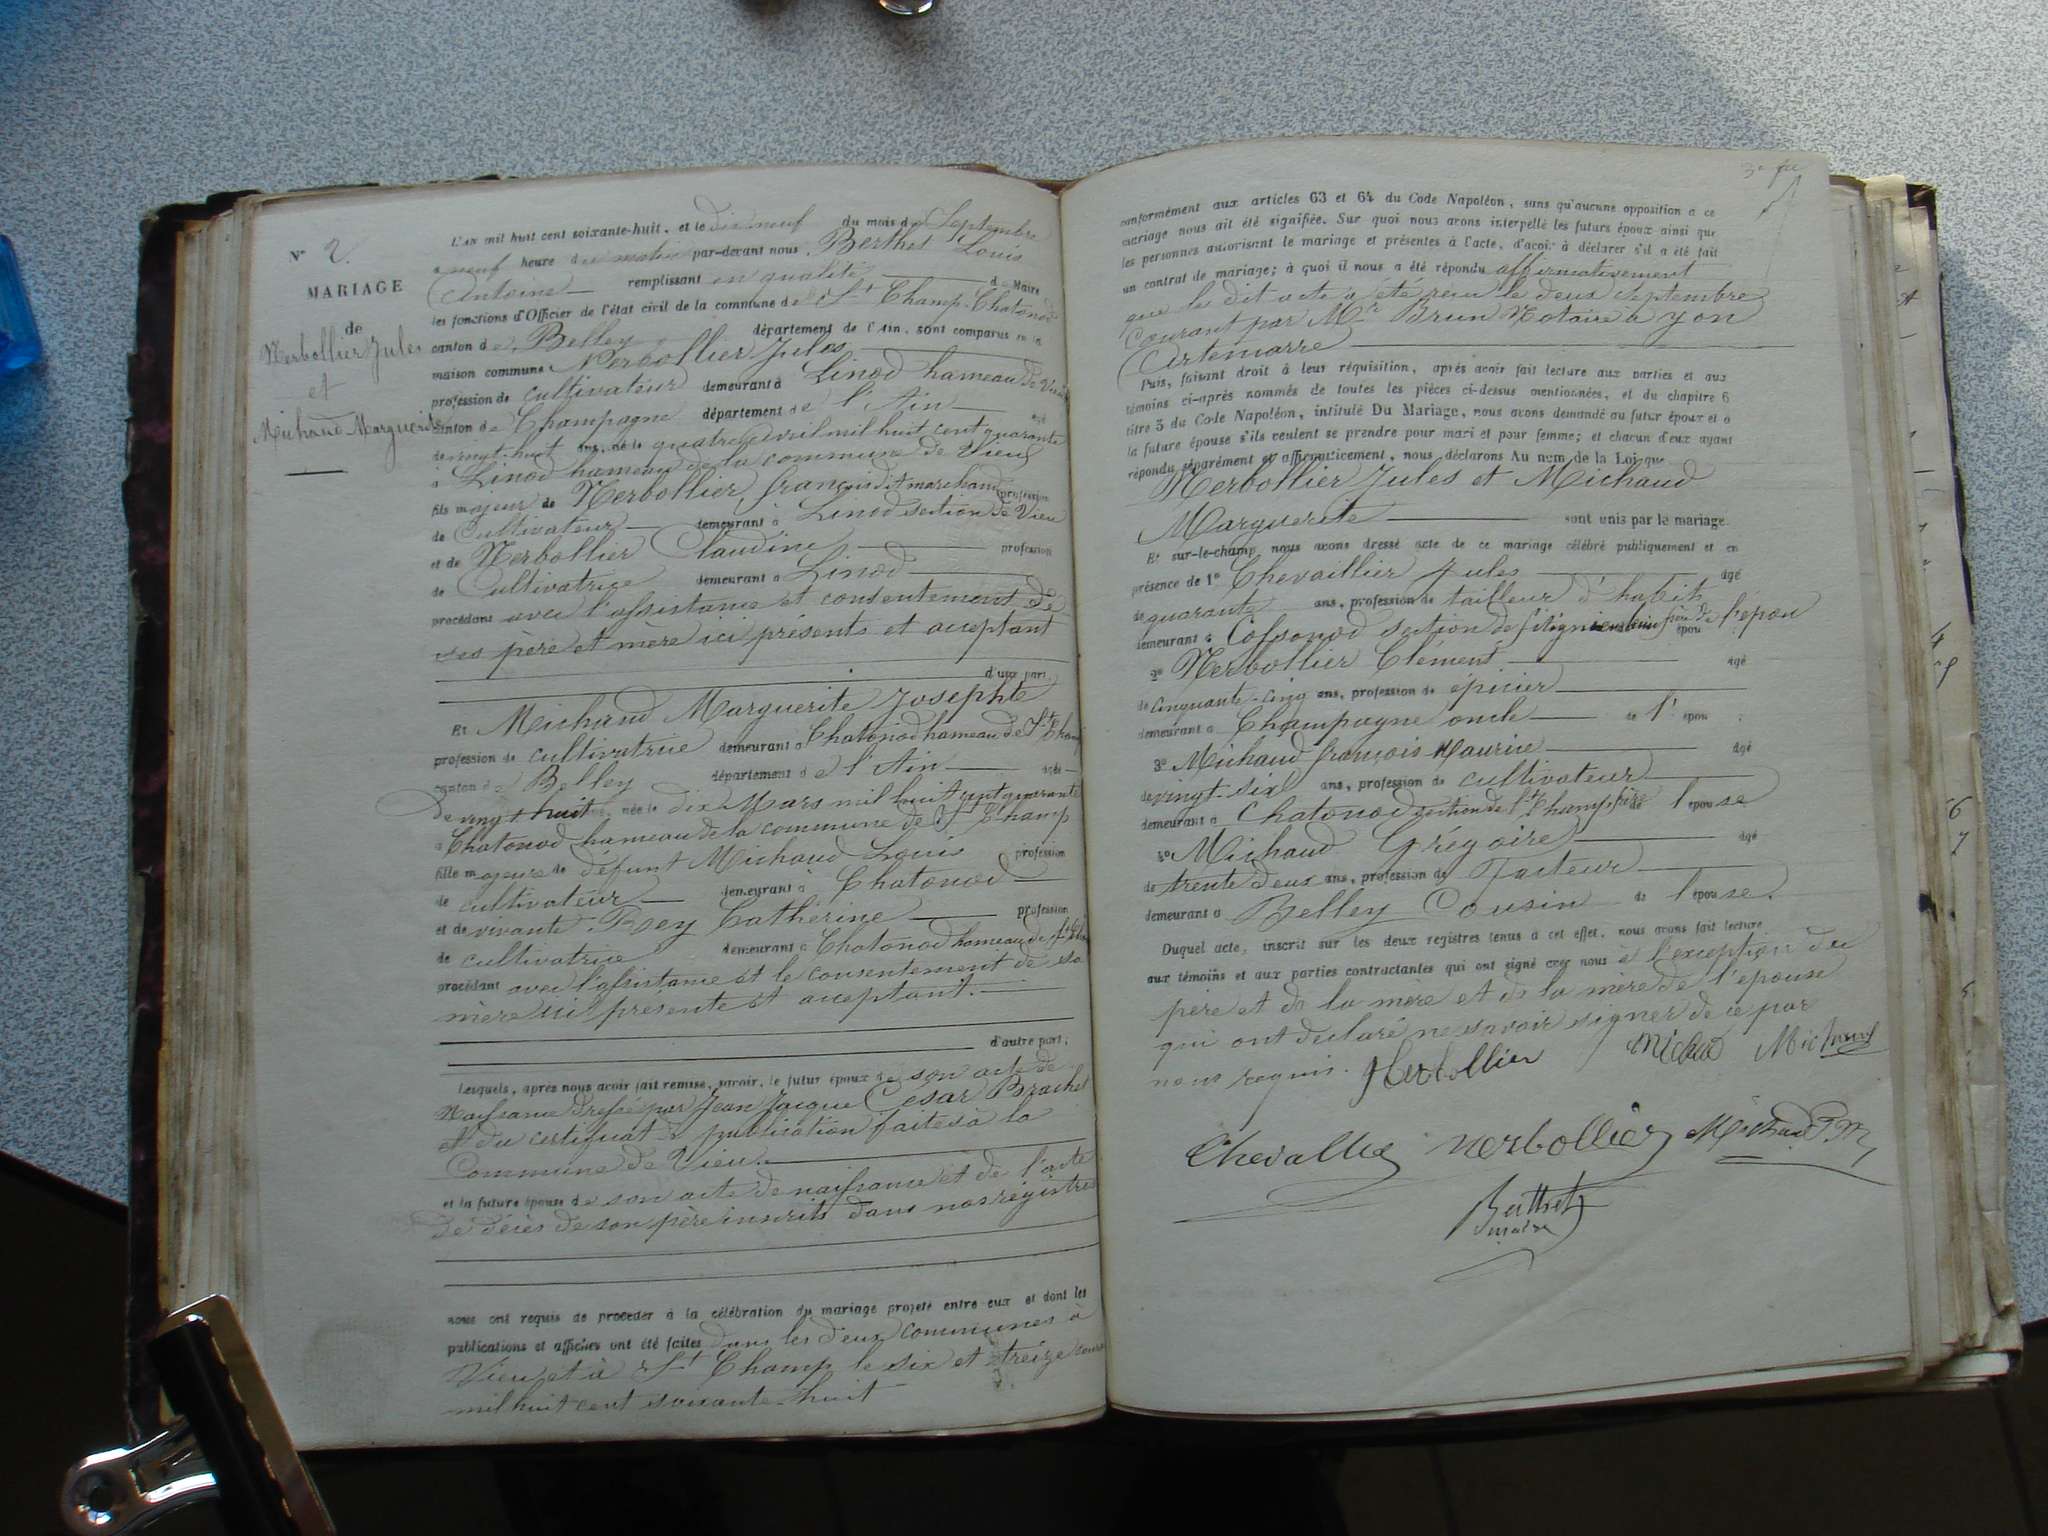 N° 2.
MARIAGE
de
Nerbollier Jules
et
Michaud Marguerite
L'an mil huit cent soixante-huit, et le dix neuf du mois de Septembre
a neuf heure du matin par-devant nous, Berthet Louis
Antoine remplissant en qualité de Maire
les fonctions d'Officier de l'état civil de la commune de St Champ-Chatonod
canton de Belley département de l'Ain, sont comparus en la
maison commune Nerbollier Jules
profession de cultivateur demeurant à Linod hameau de Vieu
canton de Champagne département de l'Ain âgé
de vingt-huit ans, né le quatre avril mil huit cent quarante
à Linod hameau de la commune de Vieu
fils majeur de Nerbollier françois dit marchand profession
de Cultivateur demeurant à Linod section de Vieu
et de Nerbollier Claudine profession
de Cultivatrice demeurant à Linod
procédant avec l'assistance et consentement de
ses père et mère ici présents et acceptant
d'une part,
Et Michaud Marguerite Josephte
profession de cultivatrice demeurant à Chatonod hameau de St Champ
canton de Belley département de l'Ain âgée
de vingt huit ans, née le dix Mars mil huit cent quarante
à Chatonod hameau de la commune de St Champ
fille majeure de défunt Michaud Louis profession
de cultivateur demeurant à Chatonod
et de vivante Rey Catherine profession
de cultivatrice demeurant à Chatonod hameau de St Champ
procédant avec l'assistance et le consentement de sa
mère ici présente et acceptant.
d'autre part;
Lesquels, après nous avoir fait remise, savoir, le futur époux de son acte de
Naissance dressé par Jean Jacque César Brachet
et du certificat de publication faites à la
Commune de Vieu.
et la future épouse de son acte de naissance et de l'acte
de décès de son père inscrits dans nos régistres
nous ont requis de procéder à la célébration du mariage projeté entre eux et dont les
publications et affiches ont été faites dans les deux communes à
Vieu et à St Champ le six et treize
mil huit cent soixante-huit
conformément aux articles 63 et 64 du Code Napoléon, sans qu'aucune opposition a ce
mariage nous ait été signifiée. Sur quoi nous avons interpellé les futurs époux ainsi que
les personnes autorisant le mariage et présentes à l'acte, d'avoir à déclarer s'il a été fait
un contrat de mariage; à quoi il nous a été répondu affirmativement
que le dit acte a été reçu le deux septembre
Courant par Me Brun Notaire à yon
Artemarre
Puis, faisant droit à leur réquisition, après avoir fait lecture aux parties et aux
témoins ci-après nommés de toutes les pièces ci-dessus mentionnées, et du chapitre 6
titre 5 du Code Napoléon, intitulé Du Mariage, nous avons demandé au futur époux et à
la future épouse s'ils veulent se prendre pour mari et pour femme; et chacun d'eux ayant
répondu séparément et affirmativement, nous déclarons Au nom de la Loi que
Nerbollier Jules et Michaud
Marguerite sont unis par le mariage.
Et sur-le-champ nous avons dressé acte de ce mariage célébré publiquement et en
présence de 1° Chevaillier Jules âgé
de quarante ans, profession de tailleur d'habits
demeurant à Cossonod section de frère de l'épou
2° Nerbollier Clément âgé
de cinquante-cinq ans, profession de épicier
demeurant à Champagne oncle de l'épou
3° Michaud françois Maurice âgé
de vingt-six ans, profession de cultivateur
demeurant à Chatonod section de St Champ frère l'épouse
4° Michaud Grégoire âgé
de trente deux ans, profession de Facteur
demeurant à Belley Cousin de l'épouse.
Duquel acte, inscrit sur les deux registres tenus à cet effet, nous avons fait lecture
aux témoins et aux parties contractantes qui ont signé avec nous à l'exception du
père et de la mère et de la mère de l'épouse
qui ont déclaré ne savoir signer de ce par
nous requis. Nerbollier Michaud Michaud
Chevallier Nerbollier Michaud F M
Berthet
maire